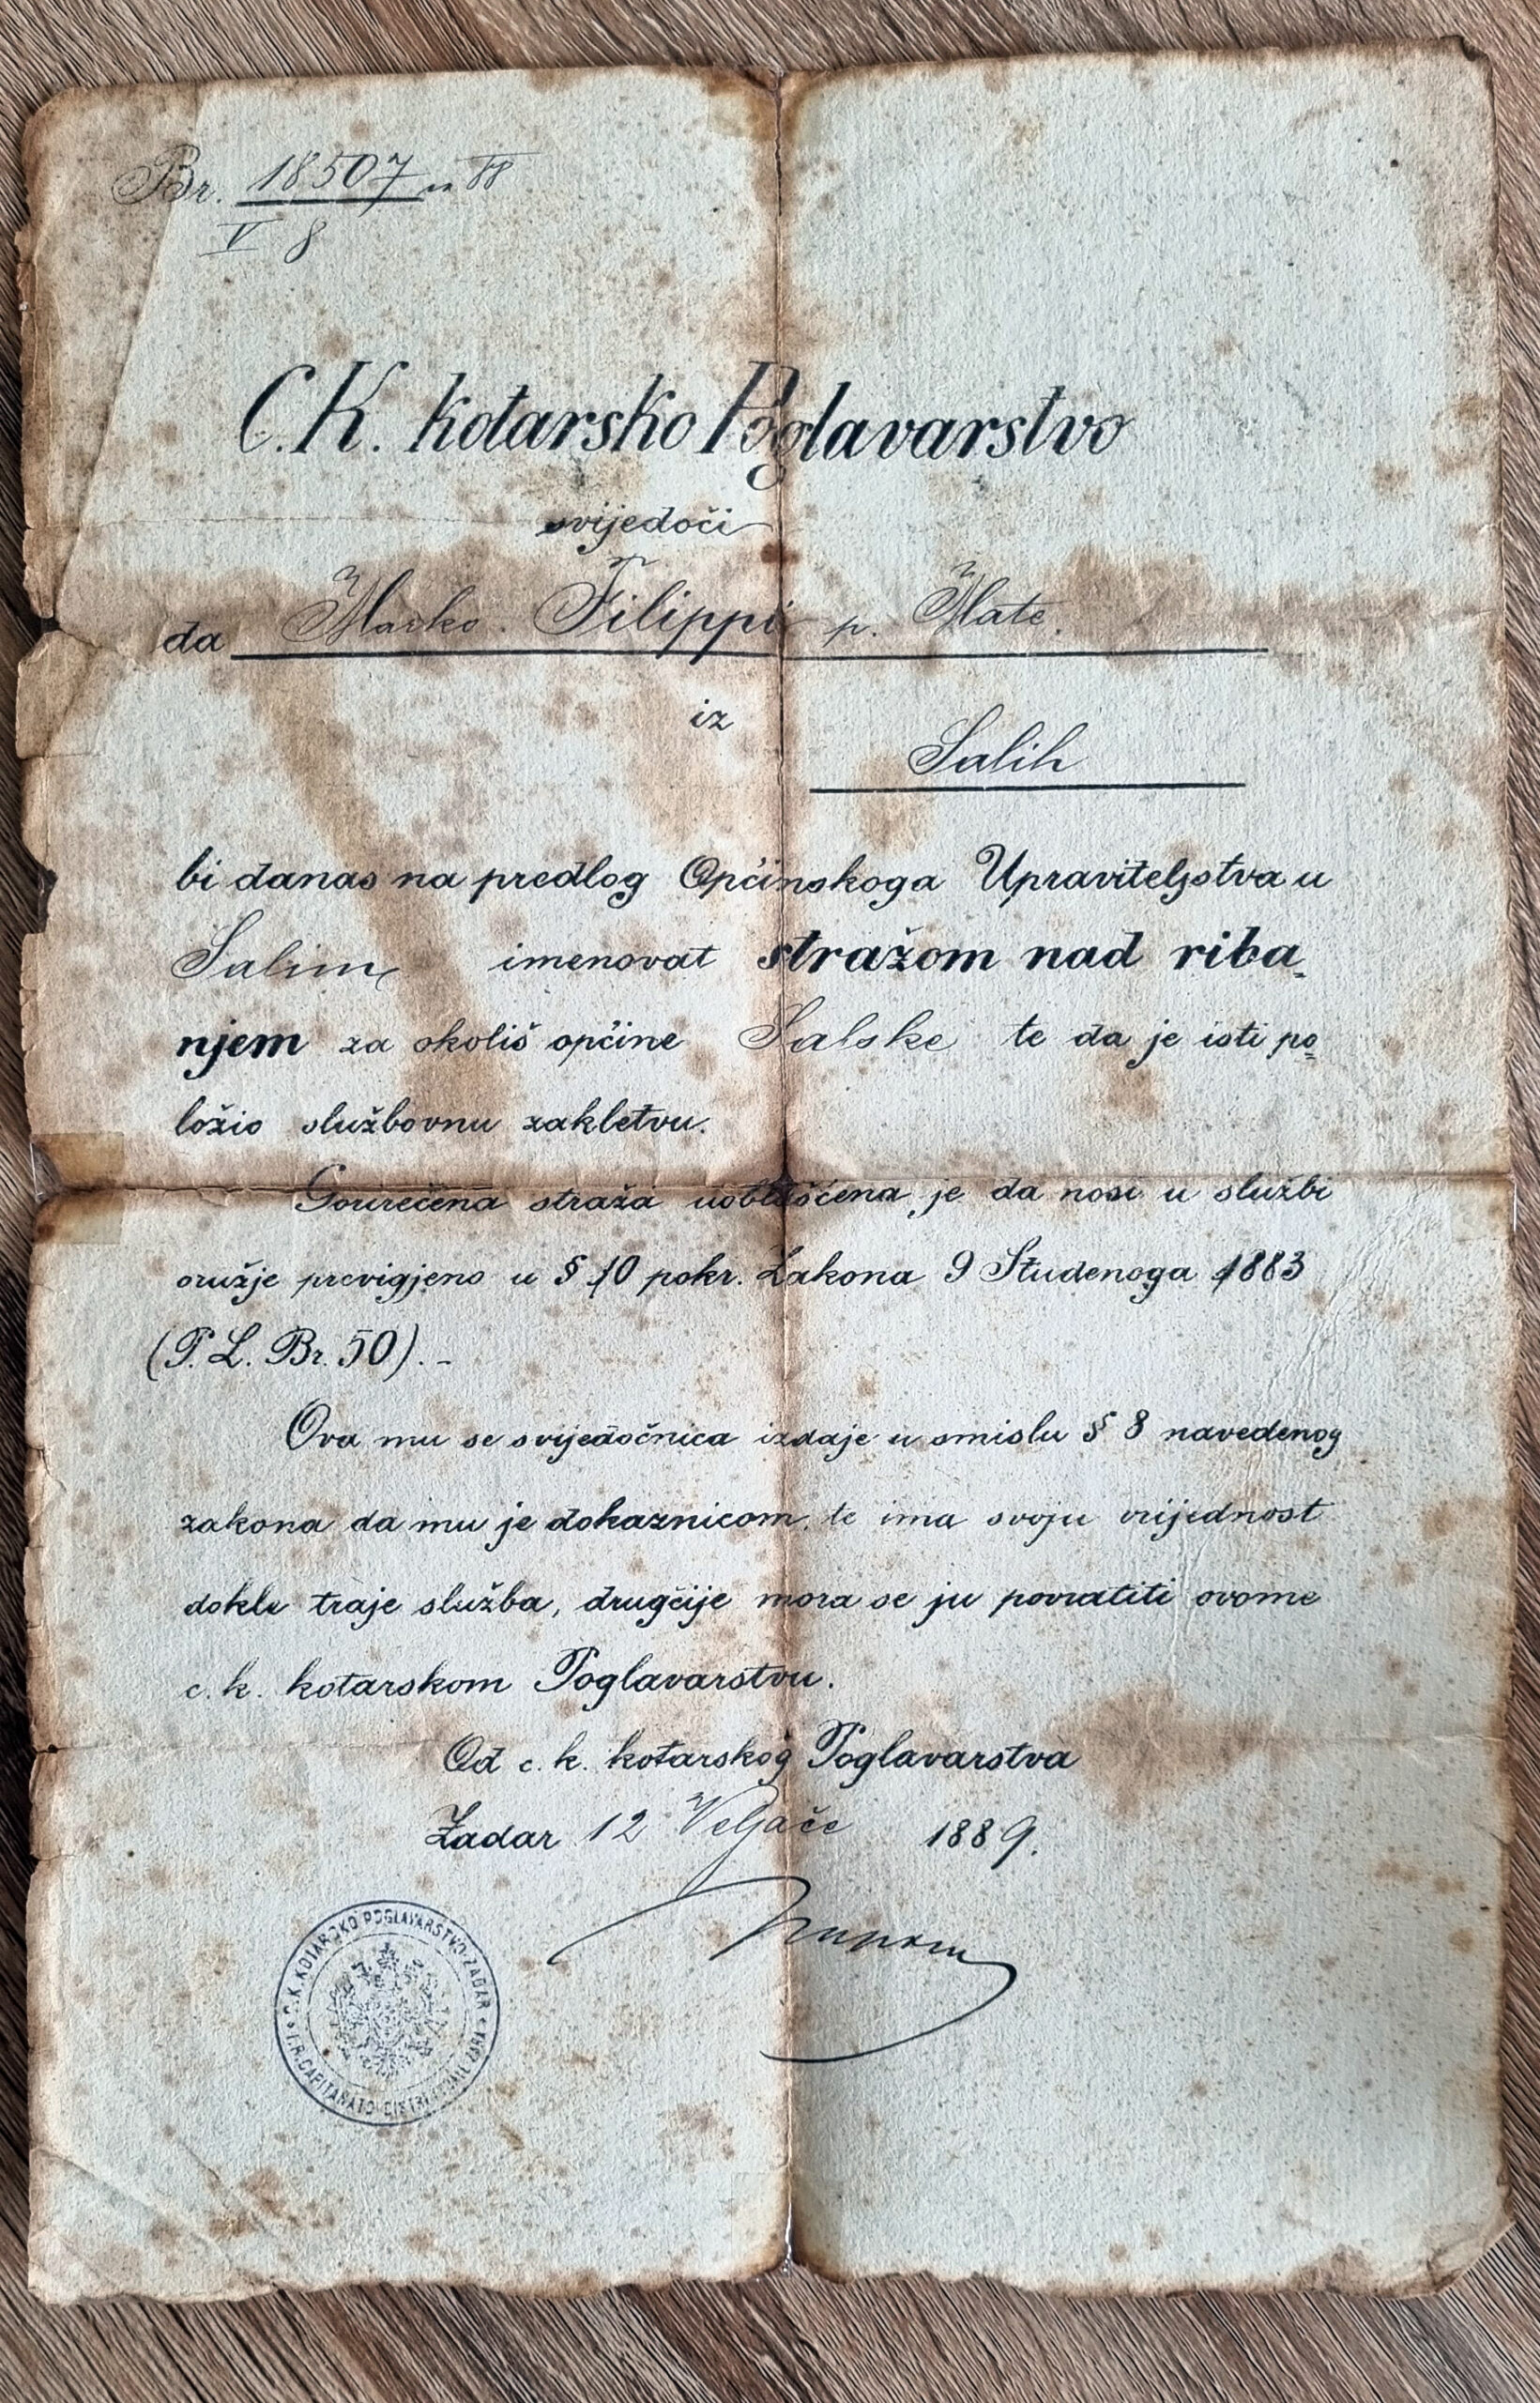 Br. 18507 88
V 8
C. K. kotarsko Poglavarstvo
svijedoči
da Marko Filippi p. Mate.
iz
Salih
bi danas na predlog Općinskoga Upraviteljstva u
Salima imenovat stražom nad riba-
njem za okoliš općine Salske te da je isti po-
ložio službovnu zakletvu.
Gorirečena straža uoblašćena je da nosi u službi
oružje previgjeno u § 10 pokr. Zakona 9 Studenoga 1883
(P. L. Br. 50). -
Ova mu se svijedočnica izdaje u smislu § 8 navedenog
zakona da mu je dokaznicom, te ima svoju vrijednost
dokle traje služba, drugčije mora se ju povratiti ovome
c. k. kotarskom Poglavarstvu.
Od c. k. kotarskog Poglavarstva
Zadar 12 Veljače 1889.
C. K. KOTARSKO POGLAVARSTVO ZADAR
I. R. CAPITANATO DISTRETTUALE ZARA